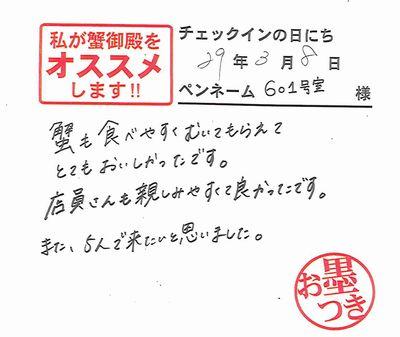 私が蟹御殿を
オススメ
します!!
チェックインの日にち
29年3月8日
ペンネーム 601号室 様
蟹も食べやすくむいてもらえて
とてもおいしかったです。
店員さんも親しみやすくて良かったです。
また、5人で来たいと思いました。
お墨つき